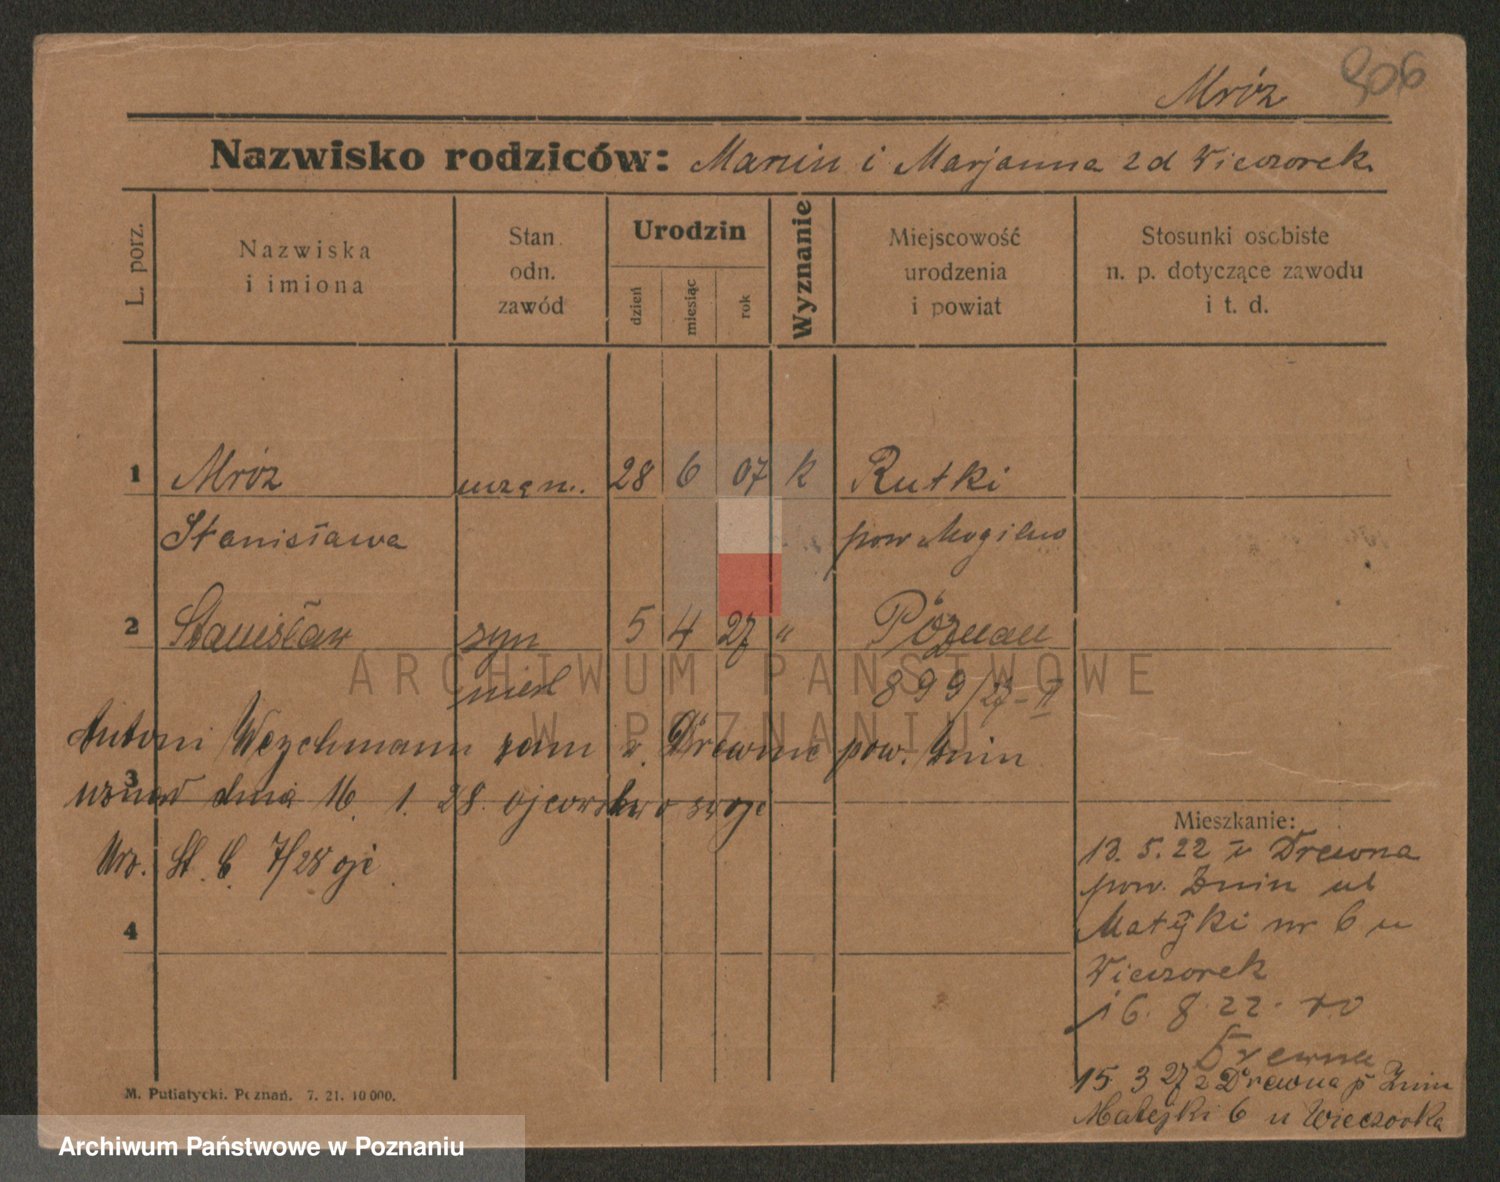 Mróz 906
Nazwisko rodziców: Marcin i Marjanna z d Wieczorek
L. porz.
Nazwiska
i imiona
Stan
odn.
zawód
Urodzin
dzień
miesiąc
rok
Wyznanie
Miejscowość
urodzenia
i powiat
Stosunki osobiste
n. p. dotyczące zawodu
i t. d.
1 Mróz 28 6 07 k Rutki
Stanisława pow Mogilno
2 Stanisław syn 5 4 27 " Poznań
nieśl 899/27-II
ARCHIWUM PAŃSTWOWE
W POZNANIU
Antoni Weychmann zam w. Drewnie pow. Żnin
3
uznał dnia 16. 1. 28. ojcowstwo swoje
Urz. St. C. 7/28
4
Mieszkanie:
13. 5. 22 z Drewna
pow. Żnin ul
Matejki nr 6 u
Wieczorek
16. 8. 22. do
Drewna
15 3 27 z Drewna p Żnin
Matejki 6 u Wieczorka
M. Putiatycki. Poznań. 7. 21. 10 000.
Archiwum Państwowe w Poznaniu